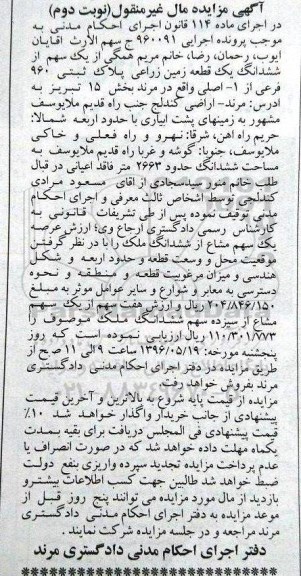 آگهی مزایده مال غیرمنقول(نوبت دوم)
در اجرای ماده ۱۱۴ قانون اجرای احکام مدنی به
موجب پرونده اجرایی ۹۶۰۰۹۱ ج سهم الارث اقایان
ایوب، رحمان، رضا، خانم مریم همگی از یک سهم از
ششدانگ یک قطعه زمین زراعی پلاک ثبتی ۹۶۰
فرعی از ۱- اصلی واقع در مرند بخش ۱۵ تبریز به
ادرس: مرند- اراضی کندلج جنب راه قدیم ملایوسف
مشهور به زمینهای پشت ابیاری با حدود اربعه شمالا:
حریم راه اهن، شرقا: نهرو و راه فعلی و خاکی
ملایوسف، جنوبا: گوشه و غربا راه قدیم ملایوسف به
مساحت ششدانگ حدود ۲۶۶۳ متر فاقد اعیانی در قبال
طلب خانم منور سیدسجادی از اقای مسعود مرادی
کندلجی توسط اشخاص ثالث معرفی و اجرای احکام
مدنی توقیف نموده پس از طی تشریفات قانونی به
کارشناس رسمی دادگستری ارجاع وی؛ ارزش عرصه
یک سهم مشاع از ششدانگ ملک را با در نظر گرفتن
موقعیت محل و وسعت قطعه و حدود اربعه و شکل
هندسی و میزان مرغوبیت قطعه و منطقه و نحوه
دسترسی به معابر و شوارع و سایر عوامل موثر به مبلغ
۲۰۴/۸۴۶/۱۵۰ ریال و ارزش هفت سهم از یک سهم
مشاع از سیزده سهم ششدانگ ملک موصوف را
۱۱۰/۳۰۱/۷۷۳ ریال ارزیابی نموده است که روز
پنجشنبه مورخه: ۱۳۹۶/۰۵/۱۹ ساعت ۹ الی ۱۱ صبح از
طریق مزایده در دفتر اجرای احکام مدنی دادگستری
مرند بفروش خواهد رفت.
مزایده از قیمت پایه شروع به بالاترین و آخرین قیمت
پیشنهادی از جانب خریدار واگذار خواهد شد ۱۰٪
قیمت پیشنهادی فی المجلس دریافت برای بقیه بمدت
یکماه مهلت داده خواهد شد که در صورت انصراف یا
عدم پرداخت مزایده تجدید سپرده واریزی بنفع دولت
ضبط خواهد شد طالبین جهت کسب اطلاعات بیشتر و
بازدید از مال مورد مزایده می توانند پنج روز قبل از
موعد مزایده به دفتر اجرای احکام مدنی دادگستری
مرند مراجعه و در جلسه مزایده شرکت نمایند.
دفتر اجرای احکام مدنی دادگستری مرند